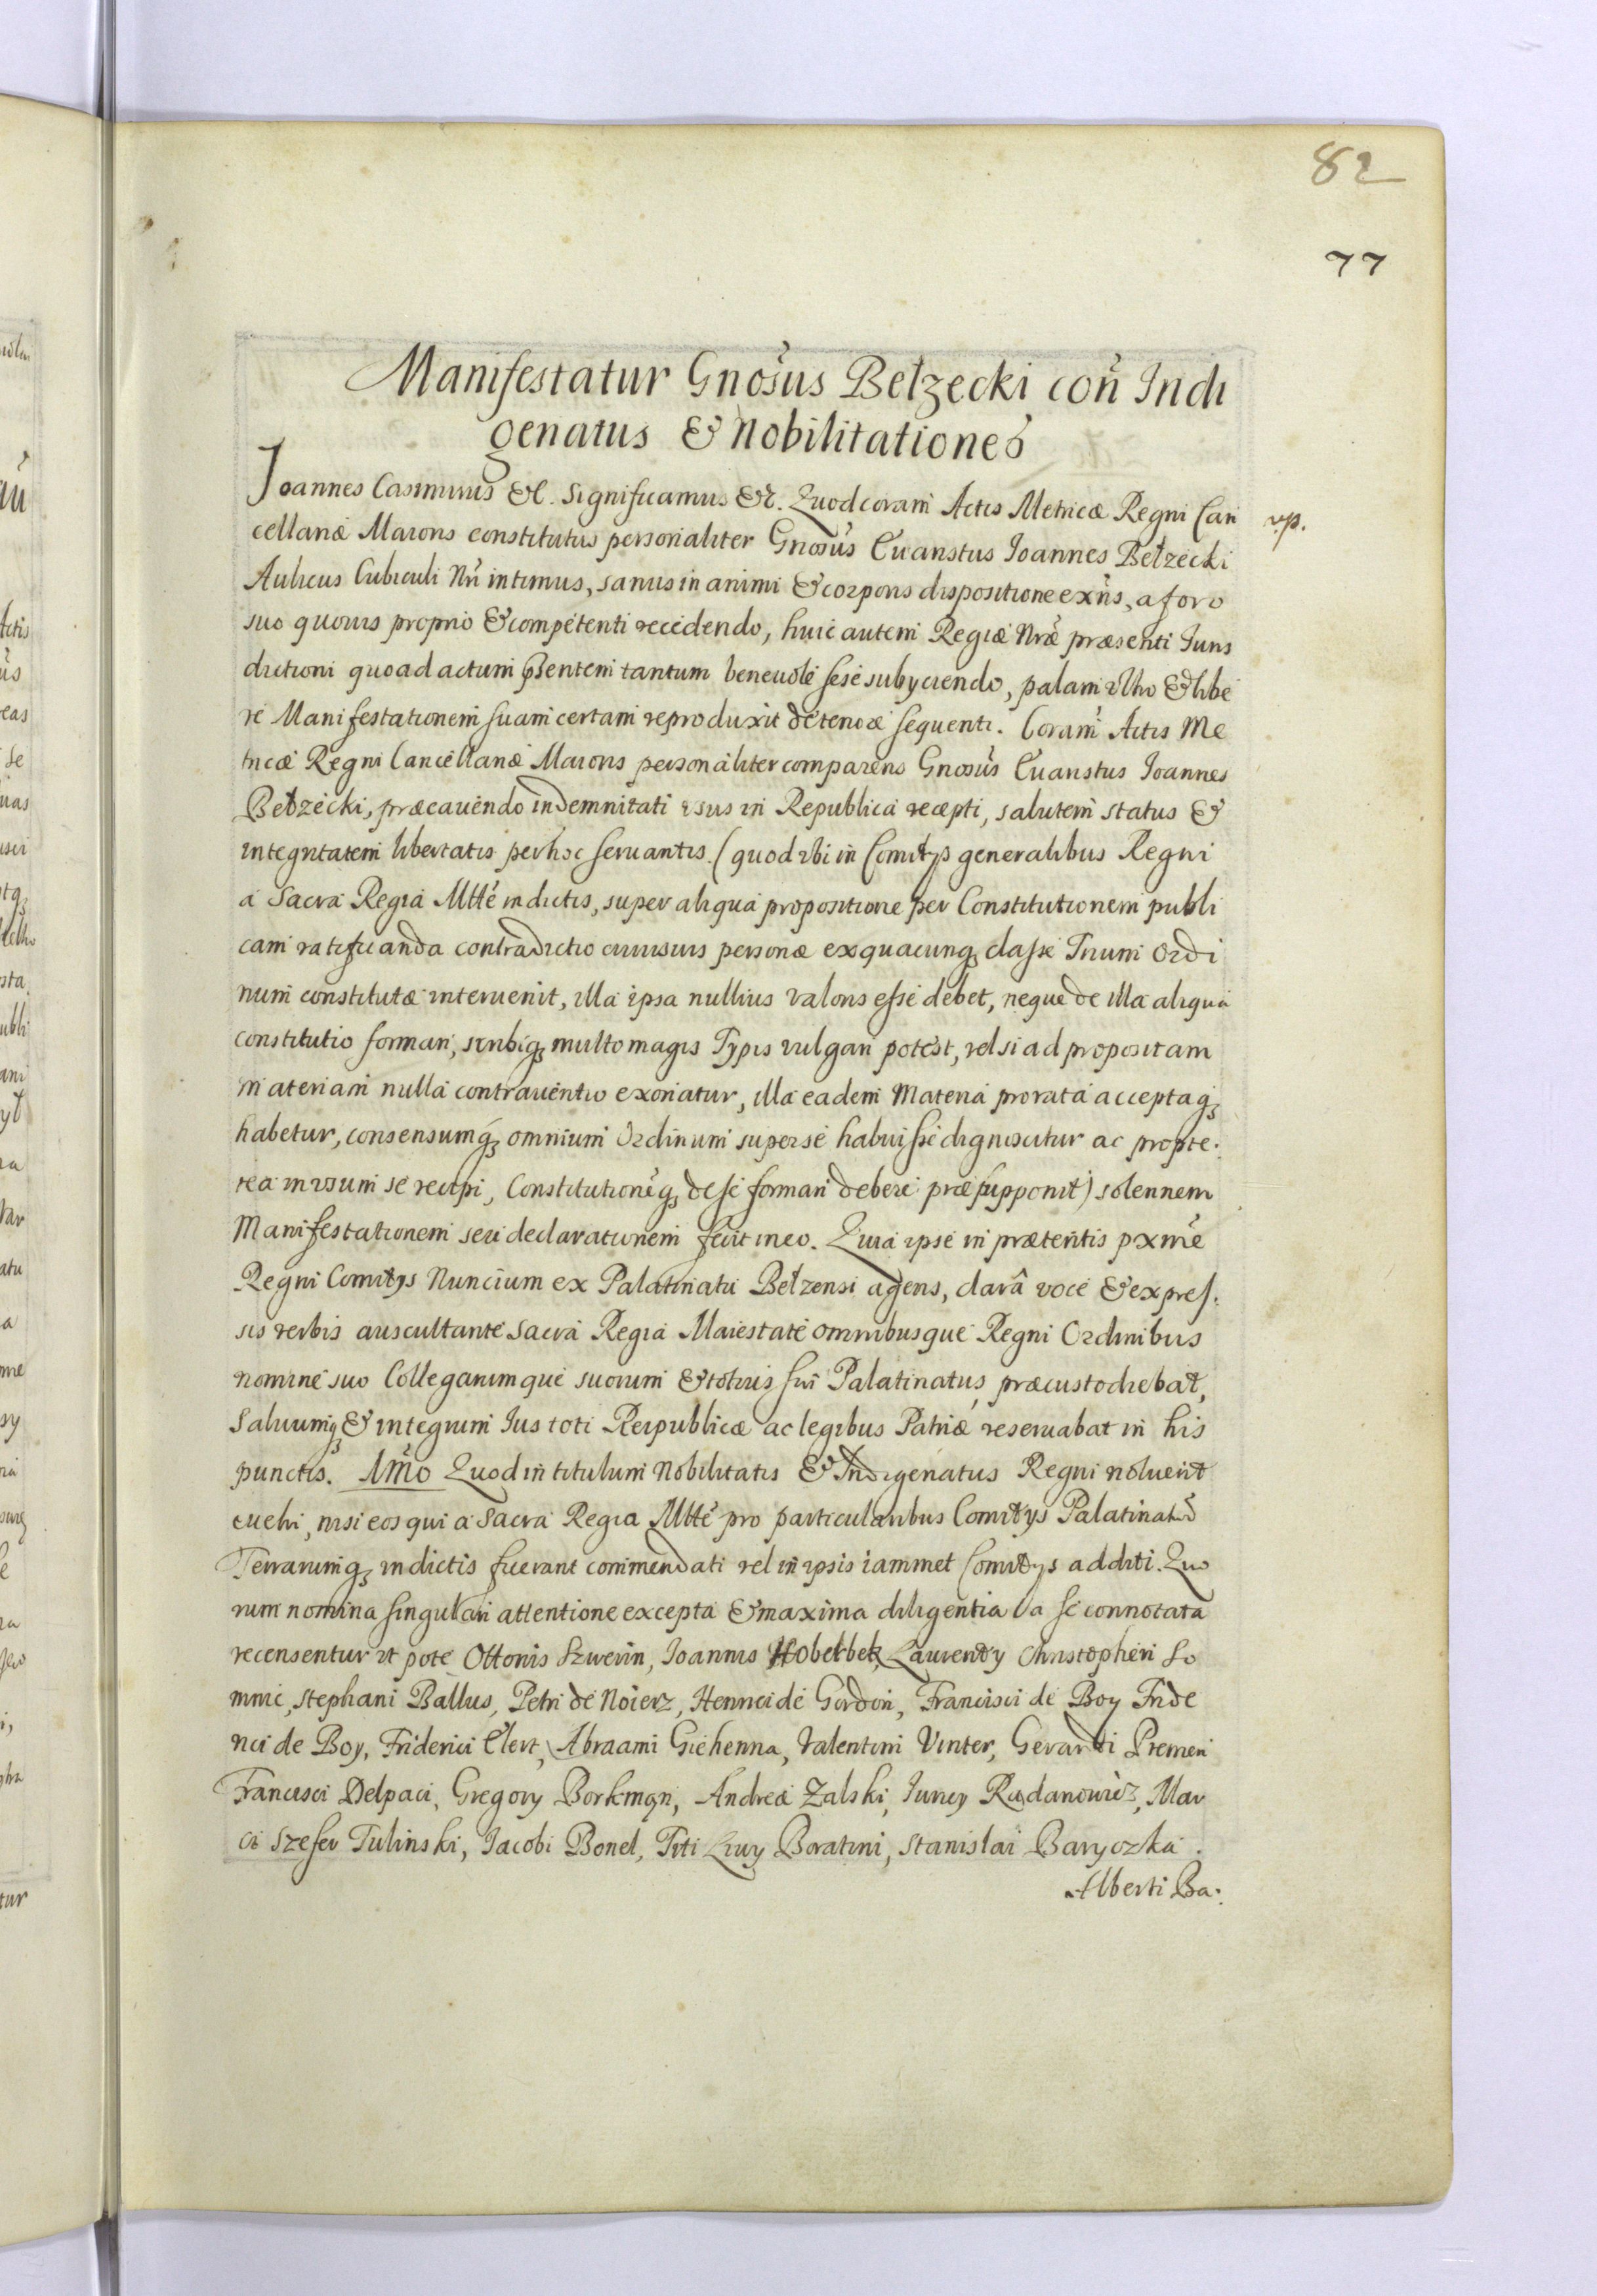 82
77
Manifestatur Gnosus Bełzecki con Indi
genatus & Nobilitationes
Joannes Casimirus &c. Significamus &c. Quod coram Actis Metricæ Regni Can
rp.
cellariæ Maioris constitutus personaliter Gnosus Evaristus Joannes Bełzecki
Aulicus Cubiculi Nri intimus, sanus in animi & corporis dispositione exns, a foro
suo quouis proprio & competenti recedendo, huic autem Regiæ Nræ præsenti Juris
dictioni quoad actum pñsentem tantum beneuole sese subyciendo, palam vltro & libe
re Manifestationem suam certam reproduxit de tenoræ sequenti. Coram Actis Me
tricæ Regni Cancellariæ Maioris personaliter comparens Gnosus Evaristus Joannes
Bełzecki, præcauendo indemnitati vsus in Republica recepti, salutem status &
integritatem libertatis per hoc seruantis. (quod vbi in Comitys generalibus Regni
a Sacra Regia Mtte indictis, super aliqua propositione per Constitutionem publi
cam ratificanda contradictio cuiusuis personæ ex quacunq classe Trium Ordi
num constitutæ interuenit, illa ipsa nullius valoris esse debet, neque de illa aliqua
constitutio formari, scribiq multo magis Typis vulgari potest, vel si ad propositam
materiam nulla contrauentio exoriatur, illa eadem Materia pro rata acceptaq
habetur, consensumq omnium Ordinum super se habuisse dignoscitur ac propte.
rea in vsum se recipi, Constitutioneq de se formari debere præsupponit) solennem
Manifestationem seu declarationem fecit in eo. Quia ipse in præteritis pxme
Regni Comitys Nuncium ex Palatinatu Bełzensi agens, clarâ voce & expres.
sis verbis auscultante Sacra Regia Maiestate omnibusque Regni Ordinibus
nomine suo Collegarumque suorum & totius sui Palatinatus, præcustodiebat,
Saluumq & integrum Jus toti Reipublicæ ac legibus Patriæ reseruabat in his
punctis. 1mo Quod in titulum Nobilitatis & Indigenatus Regni noluerit
euehi, nisi eos qui a Sacra Regia Mtte pro particularibus Comitys Palatinatus
Terrarumq indictis fuerant commendati vel in ipsis iammet Comitys additi. Quo
rum nomina singulari attentione excepta & maxima diligentia a se connotata
recensentur vt pote Ottonis Szwerin, Joannis Hoberbek, Laurenty Christopheri So
mnic, Stephani Ballus, Petri de Noierz, Henrici de Gordon, Francisci de Boy Fride
rici de Boy, Friderici Clert, Abraami Giehenna, Valentini Vinter, Gerardi Premeri
Francisci Delpaci, Gregory Borkmąn, Andreæ Zalski, Jurey Radanowicz, Mar
ci Szefer Tulinski, Jacobi Bonel, Titi Liuy Boratini, Stanislai Baryczka.
Alberti Ba.